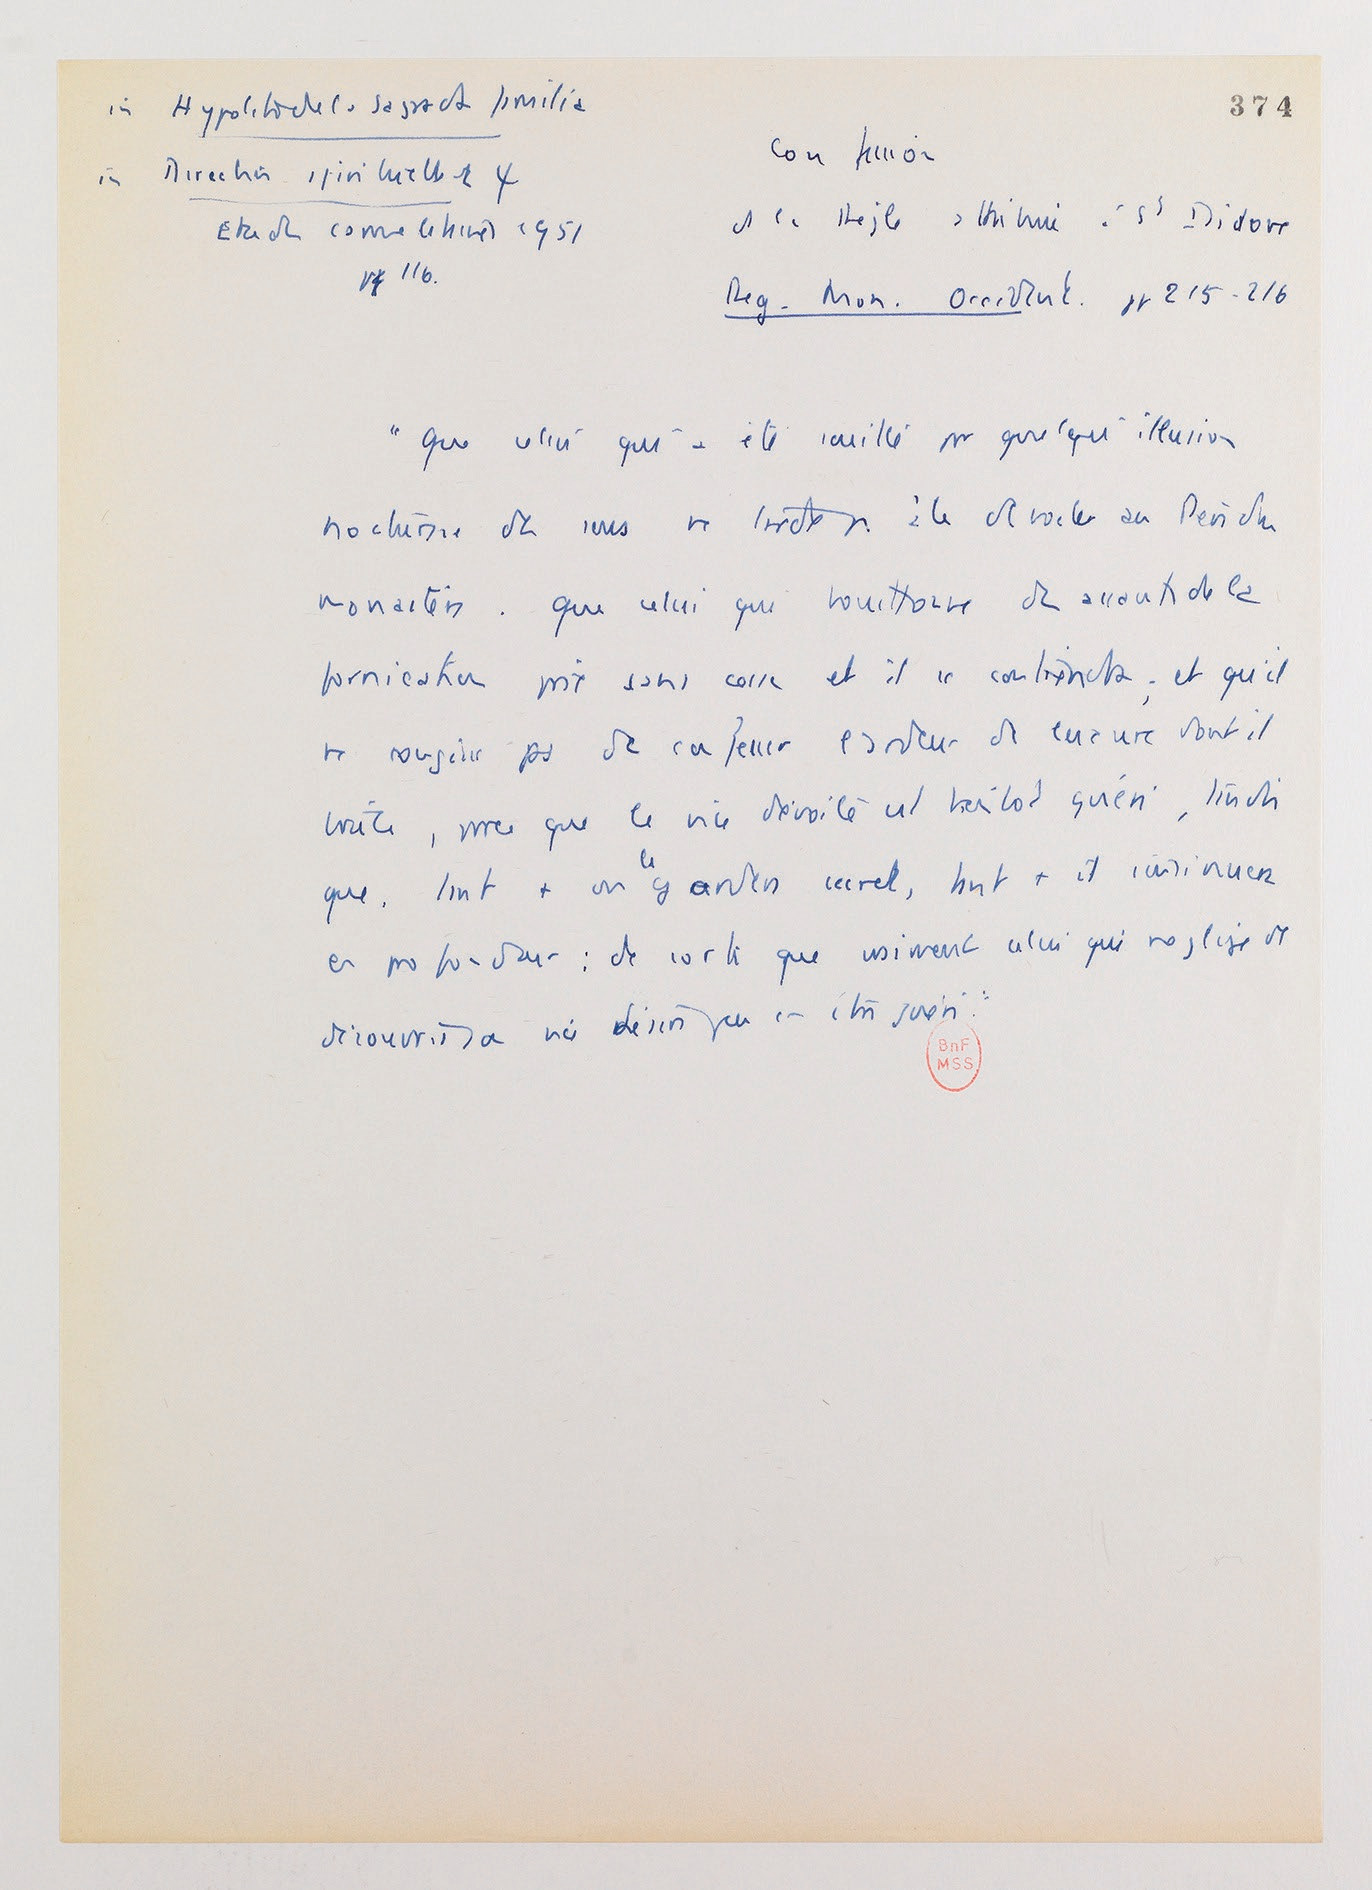 374
in Hypolito de la Sagrada familia
in Direction spirituelle et ψ
Etudes carmelitaines 1951
pp 116.
Confession
ds la Regle attribuée à St Isidore
Reg. Mon. Occident. pp 215-216
"Que celui qui a été souillé par quelque illusion
nocturne de sens ne tarde pas à le dévoiler au Père du
monastère. Que celui qui souffre de assauts de la
fornication prie sans cesse et il se contiendra ; et qu'il
ne rougisse pas de confesser l'ardeur de luxure dont il
brûle, parce que le vice dévoilé est bientôt guéri, tandis
que, tant + on le gardera secret, tant + il s'insinuera
en profondeur ; de sorte que celui qui néglige de
découvrir sa vie désire peu en être guéri."
BnF
MSS